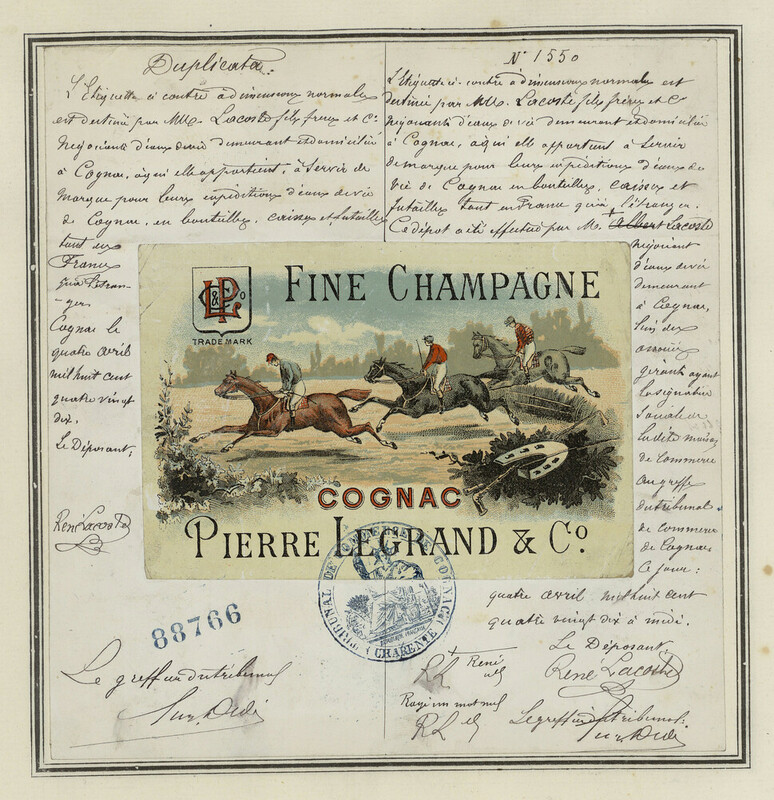 Duplicata.
L'Etiquette ci contre à dimensions normales
est destiné par MM. Lacoste fils frères et Cie
Négociants d'eaux de vie demeurant et domiciliés
à Cognac, à qui elle appartient, à servir de
marque pour leurs expéditions d'eaux de vie
de Cognac, en bouteilles, caisses et futailles
tant en
France
qu'à l'étran-
-ger.
Cognac le
quatre avril
mil huit cent
quatre vingt
dix.
Le Déposant,
René Lacoste
88766
Le greffier du tribunal
N° 1550
L'Etiquette ci-contre à dimensions normales est
destiné par MM. Lacoste fils frères et Cie
Négociants d'eaux de vie demeurant et domiciliés
à Cognac, à qui elle appartient à servir
de marque pour leurs expéditions d'eaux de
vie de Cognac en bouteilles, caisses et
futailles tant en France qu'à l'étranger.
Ce dépot a été effectué par M. + Albert Lacoste
négociant
d'eaux de vie
demeurant
à Cognac,
l'un des
associés
gérants ayant
la signature
sociale de
la dite maison
de Commerce
au greffe
du tribunal
de Commerce
de Cognac
Ce jour:
quatre avril mil huit cent
quatre vingt dix à midi.
Le Déposant.
+ René
RL
René Lacoste
Rayé un mot nul
RL
Le greffier du tribunal:
LP&Co
TRADE MARK
FINE CHAMPAGNE
COGNAC
PIERRE LEGRAND & Co.
TRIBUNAL DE COMMERCE DE COGNAC
(CHARENTE)